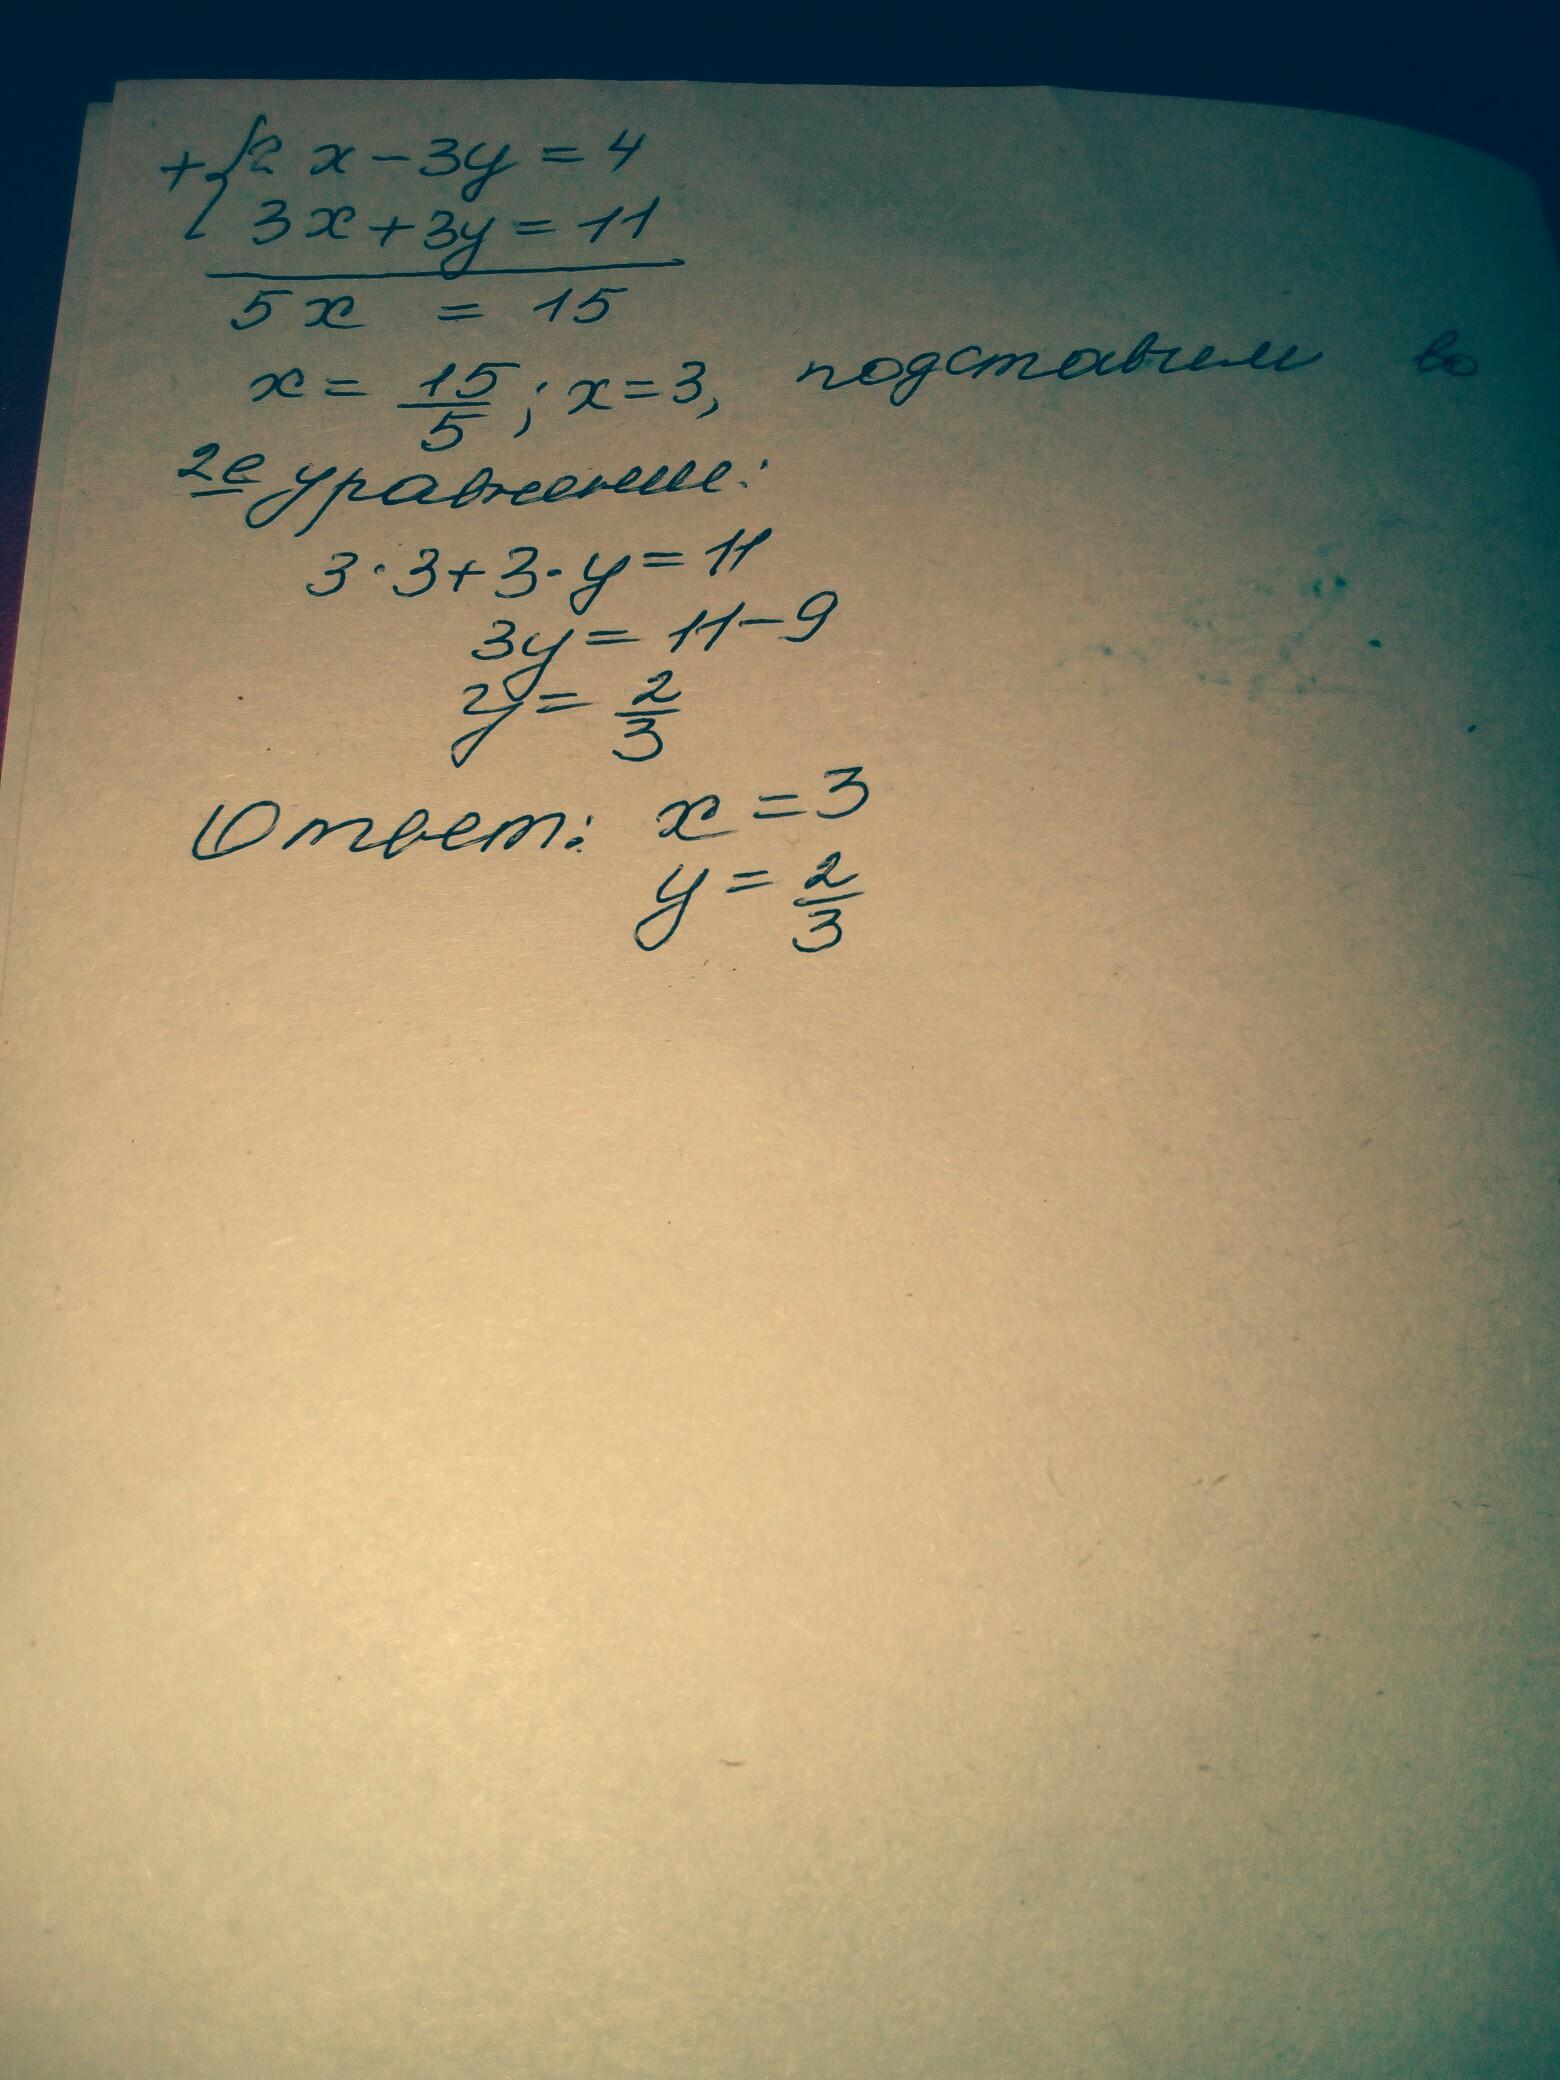 + { 2x - 3y = 4
3x + 3y = 11
5x = 15
x = 15/5; x = 3, подставим во
2е уравнение:
3·3 + 3·y = 11
3y = 11 - 9
y = 2/3
Ответ: x = 3
y = 2/3